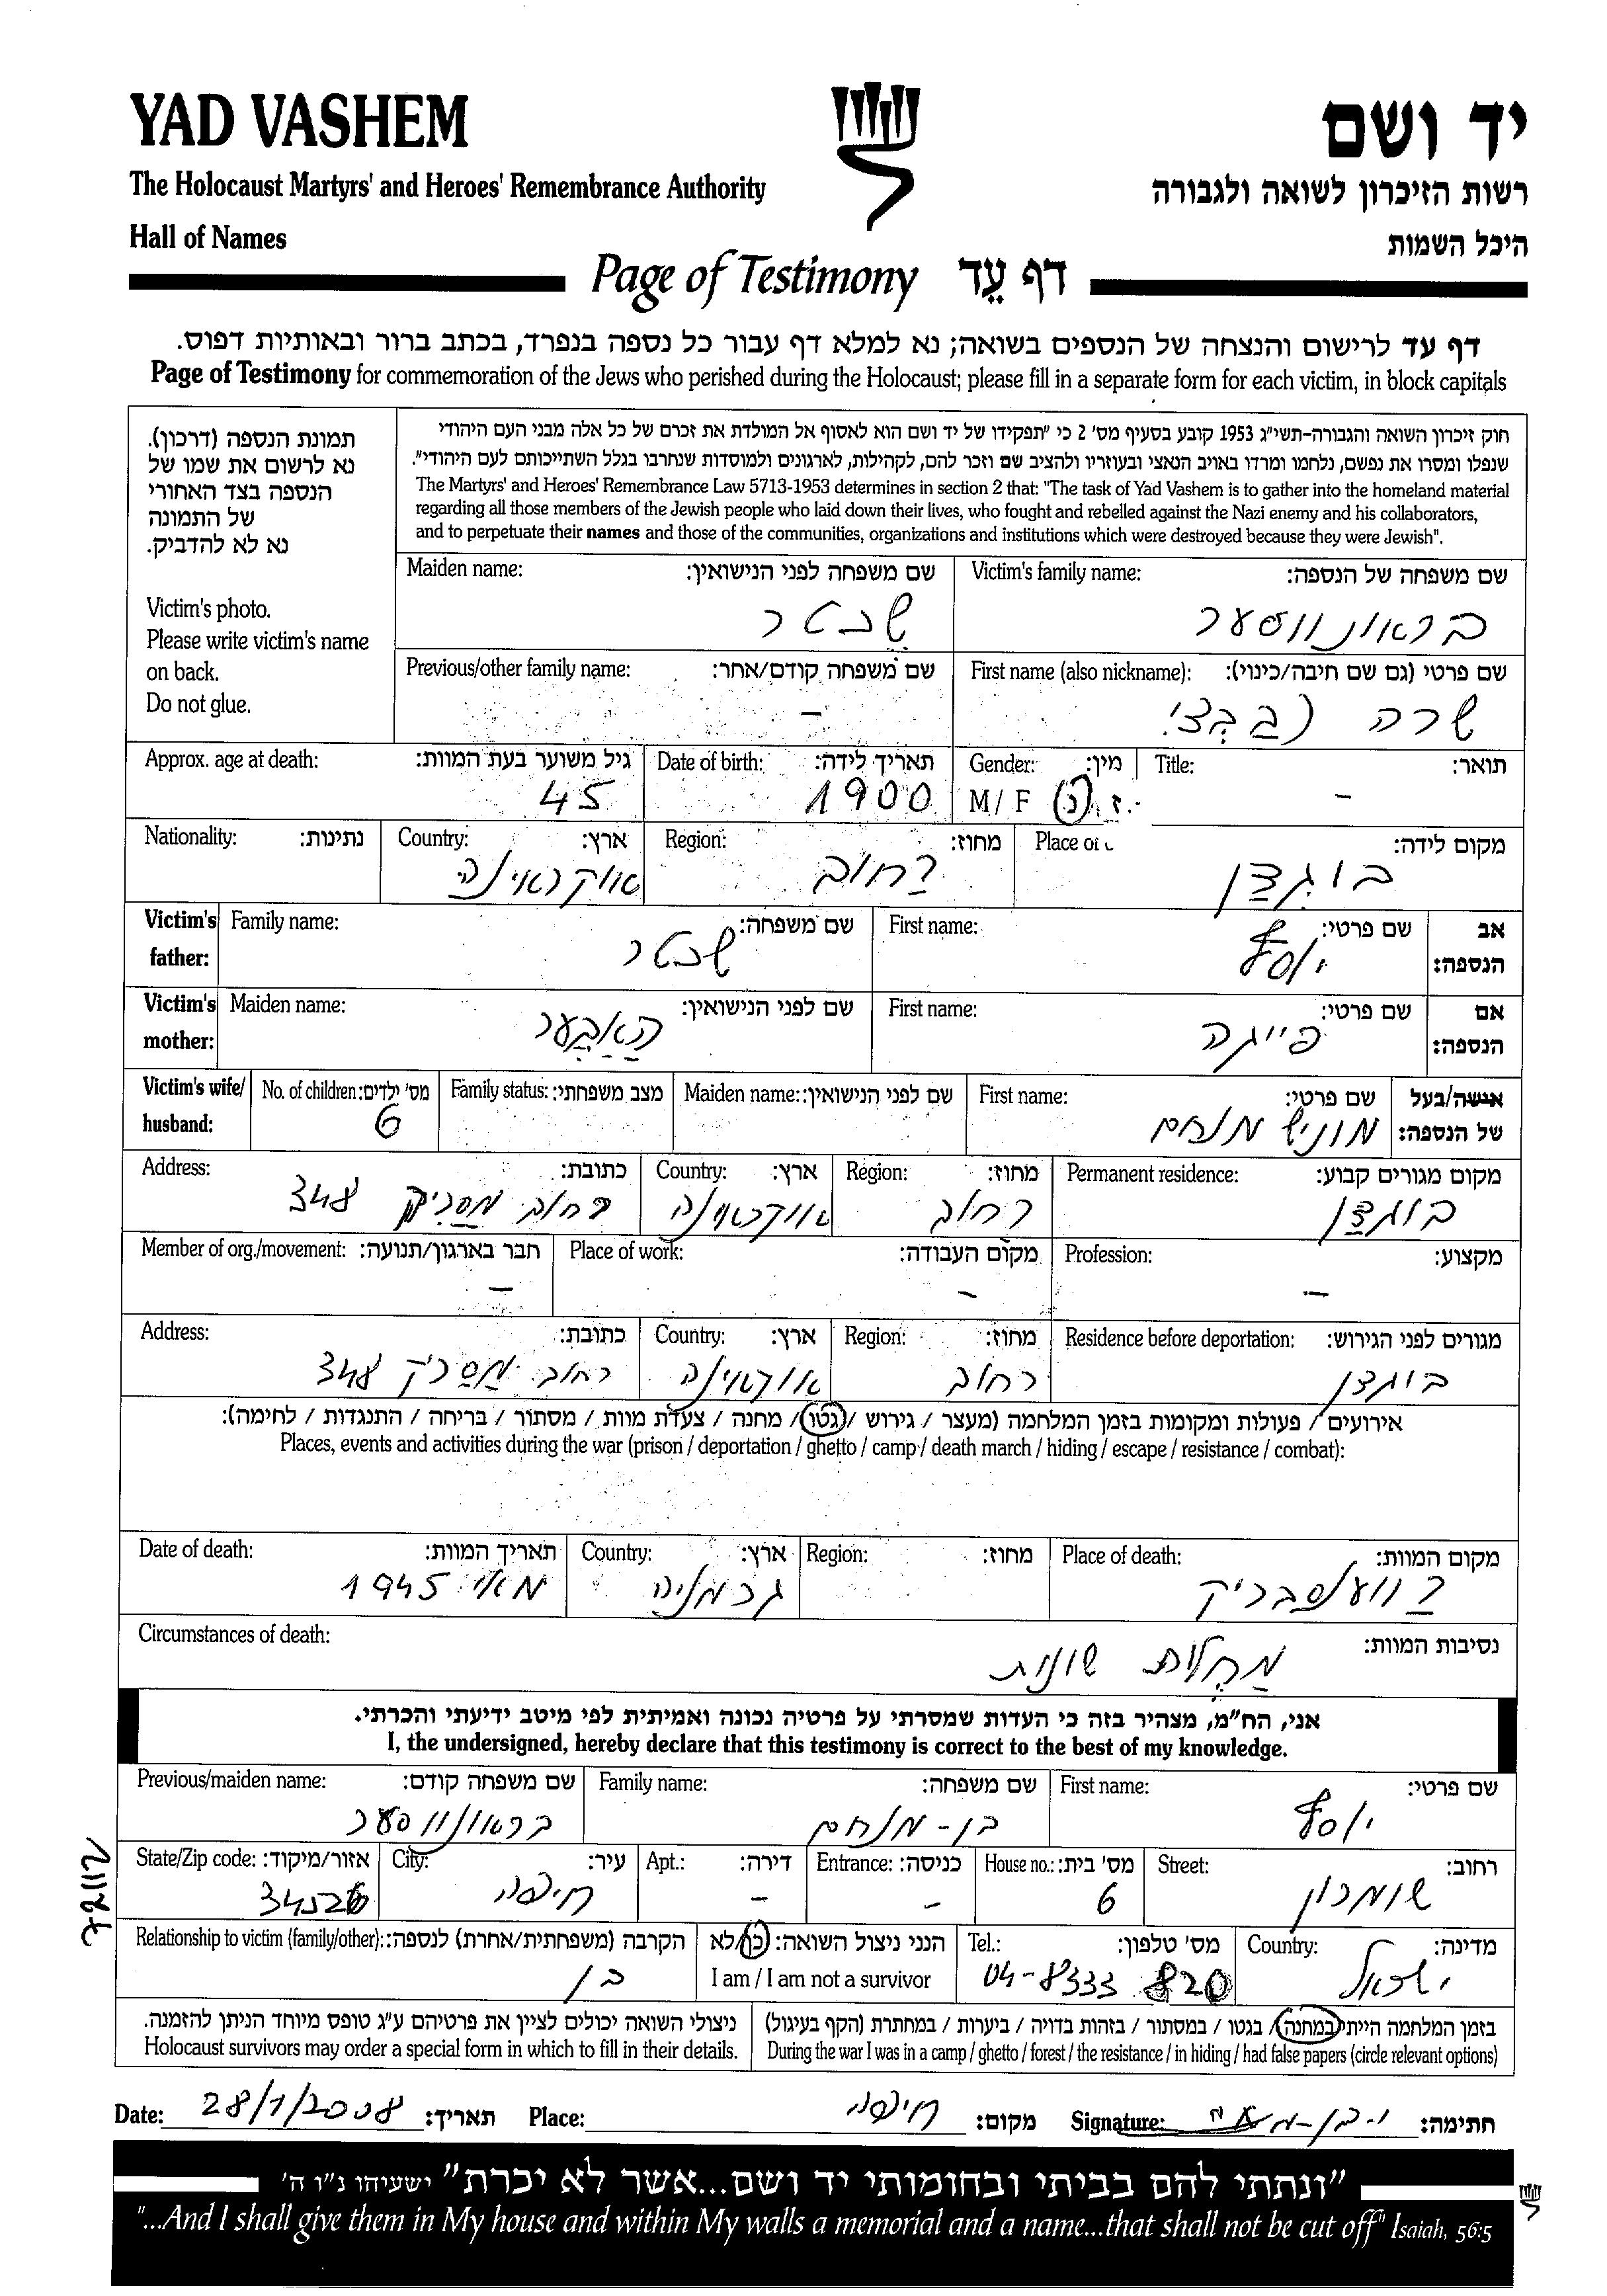 YAD VASHEM
יד ושם
The Holocaust Martyrs' and Heroes' Remembrance Authority
רשות הזיכרון לשואה ולגבורה
Hall of Names
היכל השמות
Page of Testimony דף עֵד
דף עד לרישום והנצחה של הנספים בשואה; נא למלא דף עבור כל נספה בנפרד, בכתב ברור ובאותיות דפוס.
Page of Testimony for commemoration of the Jews who perished during the Holocaust; please fill in a separate form for each victim, in block capitals
תמונת הנספה (דרכון).
נא לרשום את שמו של
הנספה בצד האחורי
של התמונה
נא לא להדביק.
Victim's photo.
Please write victim's name
on back.
Do not glue.
חוק זיכרון השואה והגבורה-תשי"ג 1953 קובע בסעיף מס' 2 כי "תפקידו של יד ושם הוא לאסוף אל המולדת את זכרם של כל אלה מבני העם היהודי
שנפלו ומסרו את נפשם, נלחמו ומרדו באויב הנאצי ובעוזריו ולהציב שם וזכר להם, לקהילות, לארגונים ולמוסדות שנחרבו בגלל השתייכותם לעם היהודי".
The Martyrs' and Heroes' Remembrance Law 5713-1953 determines in section 2 that: "The task of Yad Vashem is to gather into the homeland material
regarding all those members of the Jewish people who laid down their lives, who fought and rebelled against the Nazi enemy and his collaborators,
and to perpetuate their names and those of the communities, organizations and institutions which were destroyed because they were Jewish".
Victim's family name: שם משפחה של הנספה:
בראונווסער
Maiden name: שם משפחה לפני הנישואין:
שכטר
First name (also nickname): שם פרטי (גם שם חיבה/כינוי):
שרה
Previous/other family name: שם משפחה קודם/אחר:
–
Title: תואר:
–
Gender: מין:
M / F ז. נ
Date of birth: תאריך לידה:
1900
Approx. age at death: גיל משוער בעת המוות:
45
Place of מקום לידה:
בוגדן
Region: מחוז:
רחוב
Country: ארץ:
אוקראינה
Nationality: נתינות:
Victim's father: אב הנספה:
First name: שם פרטי:
יוסף
Family name: שם משפחה:
שכטר
Victim's mother: אם הנספה:
First name: שם פרטי:
פייגה
Maiden name: שם לפני הנישואין:
Victim's wife/ husband: אישה/בעל של הנספה:
First name: שם פרטי:
מוניש מנחם
Maiden name: שם לפני הנישואין:
Family status: מצב משפחתי:
No. of children: מס' ילדים:
6
Permanent residence: מקום מגורים קבוע:
בוגדן
Region: מחוז:
רחוב
Country: ארץ:
אוקראינה
Address: כתובת:
רחוב מסריק 348
Profession: מקצוע:
–
Place of work: מקום העבודה:
–
Member of org./movement: חבר בארגון/תנועה:
–
Residence before deportation: מגורים לפני הגירוש:
בוגדן
Region: מחוז:
רחוב
Country: ארץ:
אוקראינה
Address: כתובת:
רחוב מסריק 348
אירועים / פעולות ומקומות בזמן המלחמה (מעצר / גירוש / גטו / מחנה / צעדת מוות / מסתור / בריחה / התנגדות / לחימה):
Places, events and activities during the war (prison / deportation / ghetto / camp / death march / hiding / escape / resistance / combat):
Place of death: מקום המוות:
Region: מחוז:
Country: ארץ:
גרמניה
Date of death: תאריך המוות:
מאי 1945
Circumstances of death: נסיבות המוות:
מחלות שונות
אני, הח"מ, מצהיר בזה כי העדות שמסרתי על פרטיה נכונה ואמיתית לפי מיטב ידיעתי והכרתי.
I, the undersigned, hereby declare that this testimony is correct to the best of my knowledge.
First name: שם פרטי:
יוסף
Family name: שם משפחה:
בן-מנחם
Previous/maiden name: שם משפחה קודם:
בראונווסער
Street: רחוב:
שומרון
House no.: מס' בית:
6
Entrance: כניסה:
–
Apt.: דירה:
–
City: עיר:
חיפה
State/Zip code: אזור/מיקוד:
34526
Country: מדינה:
ישראל
Tel.: מס' טלפון:
04-8333 820
הנני ניצול השואה: כן/לא
I am / I am not a survivor
Relationship to victim (family/other): הקרבה (משפחתית/אחרת) לנספה:
בן
בזמן המלחמה הייתי במחנה / בגטו / במסתור / בזהות בדויה / ביערות / במחתרת (הקף בעיגול)
During the war I was in a camp / ghetto / forest / the resistance / in hiding / had false papers (circle relevant options)
ניצולי השואה יכולים לציין את פרטיהם ע"ג טופס מיוחד הניתן להזמנה.
Holocaust survivors may order a special form in which to fill in their details.
Date: 28/1/2008 תאריך: Place: חיפה מקום: Signature: חתימה:
"ונתתי להם בביתי ובחומותי יד ושם...אשר לא יכרת" ישעיהו נ"ו ה'
"...And I shall give them in My house and within My walls a memorial and a name...that shall not be cut off" Isaiah, 56:5